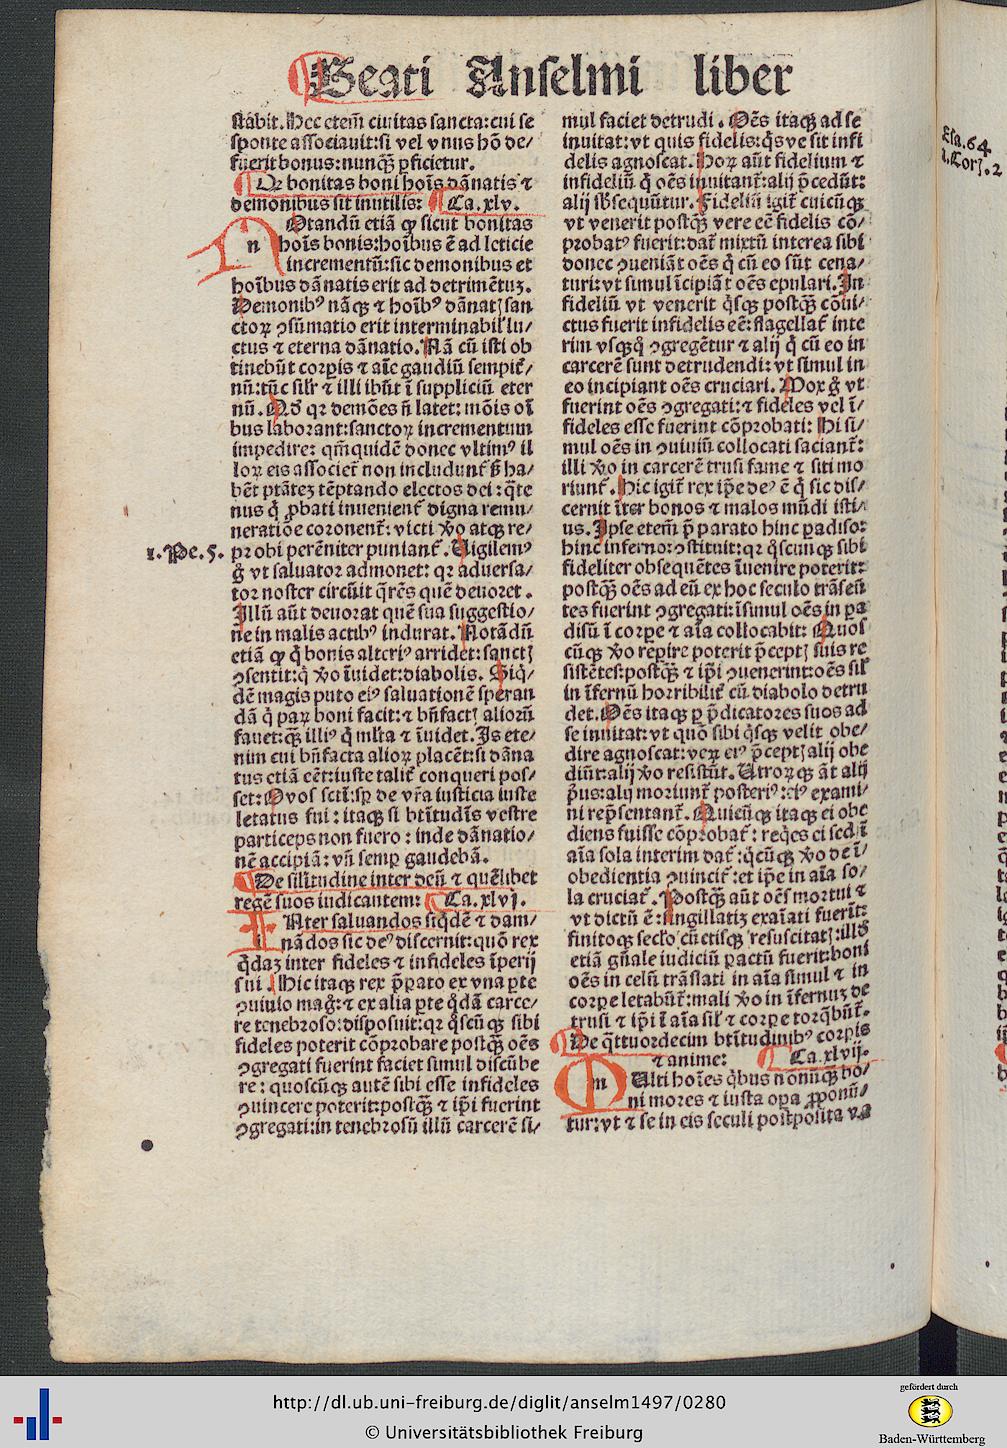 Beati Anselmi liber
stabit. Hec etem̄ ciuitas sancta: cui se
sponte associauit: si vel vnus hō de/
fuerit bonus: nunqȝ̄ ꝑficietur.
Qꝫ bonitas boni hoīs dānatis ⁊
demonibus sit inutilis: Ca. xlv.
n Otandū etiā ꝙ sicut bonitas
hoīs bonis: hoībus ē ad leticie
incrementū: sic demonibus et
hoībus dānatis erit ad detrimētuȝ.
Demonibꝰ nāqꝫ ⁊ hoībꝰ dānatꝭ san
ctoꝝ ꝯsūmatio erit interminabil' lu/
ctus ⁊ eterna dānatio. Nā cū isti ob
tinebūt corpis ⁊ aīe gaudiū sempit᷑/
nū: tūc silr ⁊ illi ibūt ī suppliciū eter
nū. Qd' qꝛ demōes n̄ latet: mōis oī
bus laborant: sanctoꝝ incrementum
impedire: qm̄ quidē donec vltimꝰ il
loꝝ eis associet᷑ non includunt᷑ ß ha/
bēt ptāteȝ tēptando electos dei: qͣte
nus qͥ ꝓbati inuenient᷑ digna remu/
neratiōe coronent᷑: victi v̊o atqꝫ re/
1. Pe. 5. probi perēniter puniant᷑. Uigilemꝰ
g̊ vt saluator admonet: qꝛ aduersa/
tor noster circūit q̄rēs quē deuoret.
Illū aūt deuorat quē sua suggestio/
ne in malis actibꝰ indurat. Notādū
etiā ꝙ qͥ bonis alteriꝰ arridet: sanctꝭ
ꝯsentit: qͥ v̊o īuidet: diabolis. Siqͥ/
dē magis puto eiꝰ saluationē speran
dā qͥ paꝝ boni facit: ⁊ bn̄factꝭ alioꝝū
fauet: qȝ̄ illiꝰ qͥ ml'ta ⁊ īuidet. Is ete/
nim cui bn̄facta alioꝝ placēt: si dāna
tus etiā eēt: iuste talit᷑ conqueri pos/
set: Quos scīs: sp̄ de vr̄a iusticia iuste
letatus fui: itaqꝫ si btītudīs vestre
particeps non fuero: inde dānatio/
nē accipiā: vn̄ semp gaudebā.
De sil'itudine inter deū ⁊ quēlibet
regē suos iudicantem: Ca. xlvj.
i Nter saluandos siqͥdē ⁊ dam/
nādos sic deꝰ discernit: quō rex
qͥdaȝ inter fideles ⁊ infideles īperij
sui. Hic itaqꝫ rex p̄parato ex vna ꝑte
ꝯuiuio mag̊: ⁊ ex alia ꝑte qͦdā carce/
re tenebroso: disposuit: qꝛ qͦscūqꝫ sibi
fideles poterit cōprobare postqȝ̄ oēs
ꝯgregati fuerint faciet simul discūbe
re: quoscūqꝫ autē sibi esse infideles
ꝯuincere poterit: postqȝ̄ ⁊ ip̄i fuerint
ꝯgregati: in tenebrosū illū carcerē si/
mul faciet detrudi. Oēs itaqꝫ ad se
inuitat: vt quis fidelis: qͥsve sit infi
delis agnoscat. Hoꝝ aūt fidelium ⁊
infideliū qͥ oēs inuitant᷑: alij p̄cedūt:
alij sb̄sequūtur. Fideliū igit᷑ cuicūqꝫ
vt venerit postqȝ̄ vere eē fidelis cō/
probatꝰ fuerit: dat᷑ mixtū interea sibi
donec ꝯueniāt oēs qͥ cū eo sūt cena/
turi: vt simul īcipiāt oēs epulari. In
fideliū vt venerit qͥsqꝫ postqȝ̄ cōui/
ctus fuerit infidelis eē: flagellat᷑ inte
rim vsqꝫqͦ ꝯgregētur ⁊ alij qͥ cū eo in
carcerē sunt detrudendi: vt simul in
eo incipiant oēs cruciari. Mox g̊ vt
fuerint oēs ꝯgregati: ⁊ fideles vel ī/
fideles esse fuerint cōprobati: Hi si/
mul oēs in ꝯuiuiū collocati saciant᷑:
illi v̊o in carcerē trusi fame ⁊ siti mo
riunt᷑. Hic igit᷑ rex ip̄e deꝰ ē qͥ sic dis/
cernit īter bonos ⁊ malos mūdi isti/
us. Ipse etem̄ p̄parato hinc padiso:
hinc inferno: ꝯstituit: qꝛ qͦscunqꝫ sibi
fideliter obsequētes īuenire poterit:
postqȝ̄ oēs ad eū ex hoc seculo trāseū
tes fuerint ꝯgregati: īsimul oēs in pa
disū ī corpe ⁊ aīa collocabit: Quos
cūqꝫ v̊o repire poterit p̄ceptꝭ suis re
sistētes: postqȝ̄ ⁊ ip̄i ꝯuenerint: oēs sil'
in īfernū horribilit᷑ cū diabolo detru
det. Oēs itaqꝫ ꝑ p̄dicatores suos ad
se inuitat: vt quō sibi qͥsqꝫ velit obe/
dire agnoscat: veꝝ eiꝰ p̄ceptꝭ alij obe
diūt: alij v̊o resistūt. Utroꝝqꝫ āt alij
pͥus: alij moriunt᷑ posteriꝰ: eiꝰ exami/
ni rep̄sentant᷑. Quicūqꝫ itaqꝫ ei obe
diens fuisse cōprobat᷑: reqͥes ei sed ī
aīa sola interim dat᷑: qͥcūqꝫ v̊o de ī/
obedientia ꝯuincit᷑: et ip̄e in aīa so/
la cruciat᷑. Postqȝ̄ aūt oēs mortui ⁊
vt dictū ē: singillatiȝ exaīati fuerīt:
finitoqꝫ seclo cūctisqꝫ resuscitatꝭ: illd'
etiā gn̄ale iudiciū ꝑactū fuerit: boni
oēs in celū trāslati in aīa simul ⁊ in
corpe letabūt᷑: mali v̊o in īfernuȝ de
trusi ⁊ ip̄i ī aīa sil' ⁊ corpe torqͥbūt᷑.
De qͣttuordecim btītudinibꝰ corpis
⁊ anime: Ca. xlvij.
m Ulti hoīes qͥbus nōnūqꝫ bo/
ni mores ⁊ iusta oꝑa ꝓponū/
tur: vt ⁊ se in eis seculi postposita va
Esa. 64
1. Corꝭ. 2
http://dl.ub.uni-freiburg.de/diglit/anselm1497/0280
© Universitätsbibliothek Freiburg
gefördert durch
Baden-Württemberg